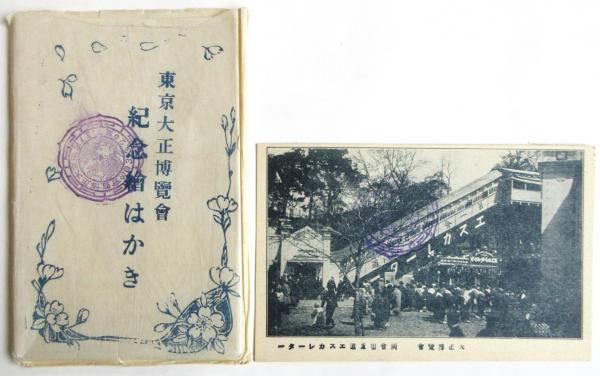 東京大正博覽會
紀念繪はかき
エスカレーター
大正博覽會 両會場直通エスカレーター